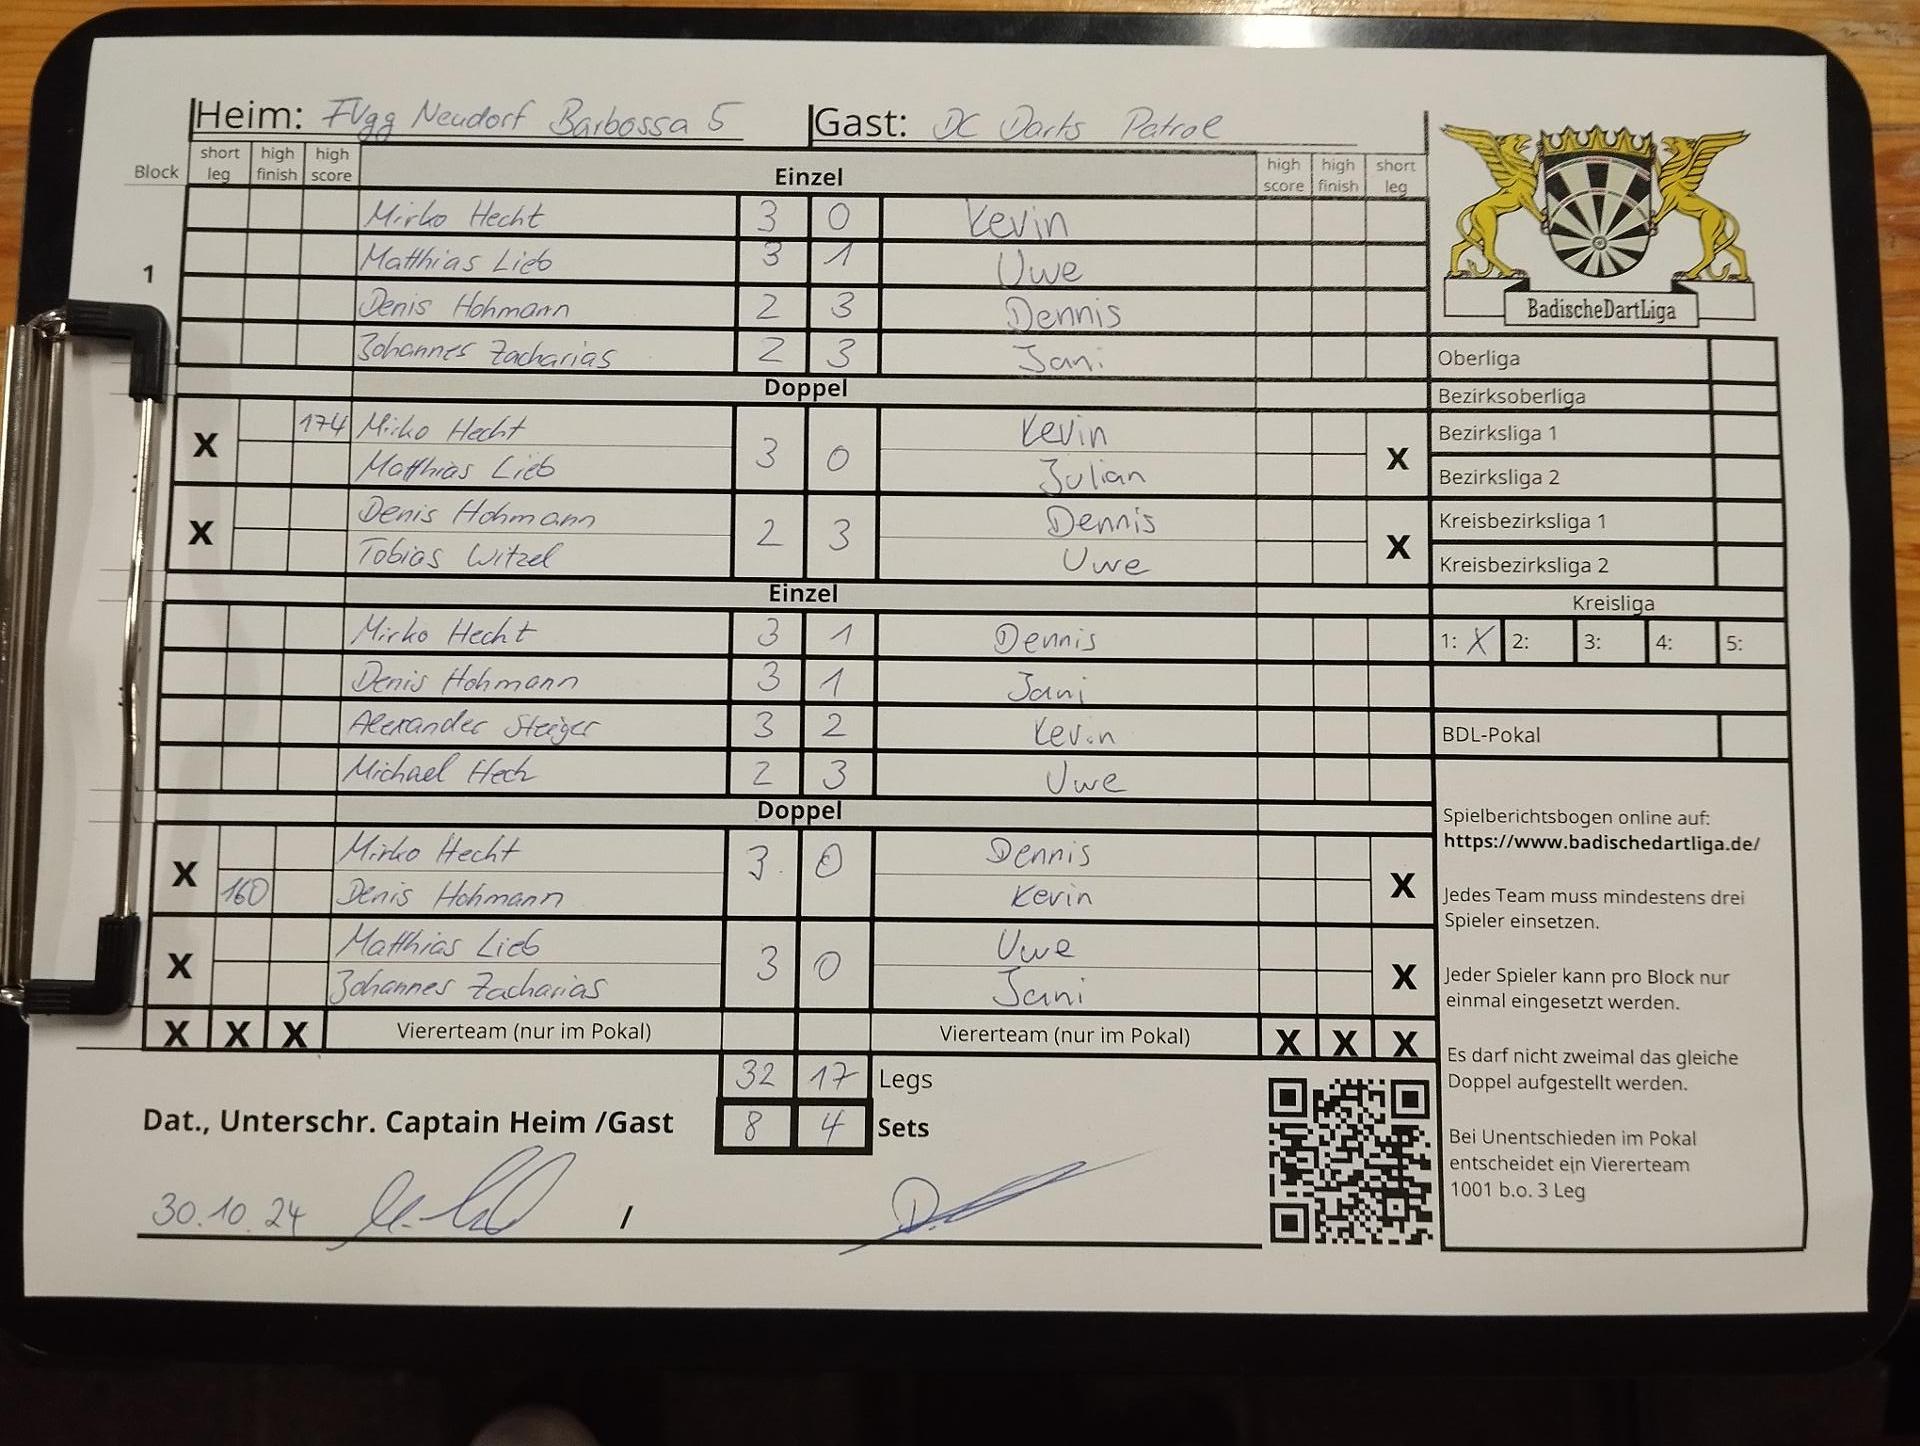 Heim: FVgg Neudorf Barbossa 5 Gast: DC Darts Patrol
Block short leg high finish high score Einzel high score high finish short leg
1
Mirko Hecht 3 0 Kevin
Matthias Lieb 3 1 Uwe
Denis Hohmann 2 3 Dennis
Johannes Zacharias 2 3 Jani
Doppel
X 174 Mirko Hecht 3 0 Kevin X
Matthias Lieb Julian
X Denis Hohmann 2 3 Dennis X
Tobias Witzel Uwe
Einzel
Mirko Hecht 3 1 Dennis
Denis Hohmann 3 1 Jani
Alexander Steiger 3 2 Kevin
Michael Hech 2 3 Uwe
Doppel
X Mirko Hecht 3 0 Dennis X
160 Denis Hohmann Kevin
X Matthias Lieb 3 0 Uwe X
Johannes Zacharias Jani
X X X Viererteam (nur im Pokal) Viererteam (nur im Pokal) X X X
32 17 Legs
Dat., Unterschr. Captain Heim /Gast 8 4 Sets
30.10.24 /
BadischeDartLiga
Oberliga
Bezirksoberliga
Bezirksliga 1
Bezirksliga 2
Kreisbezirksliga 1
Kreisbezirksliga 2
Kreisliga
1: X 2: 3: 4: 5:
BDL-Pokal
Spielberichtsbogen online auf:
https://www.badischedartliga.de/
Jedes Team muss mindestens drei
Spieler einsetzen.
Jeder Spieler kann pro Block nur
einmal eingesetzt werden.
Es darf nicht zweimal das gleiche
Doppel aufgestellt werden.
Bei Unentschieden im Pokal
entscheidet ein Viererteam
1001 b.o. 3 Leg